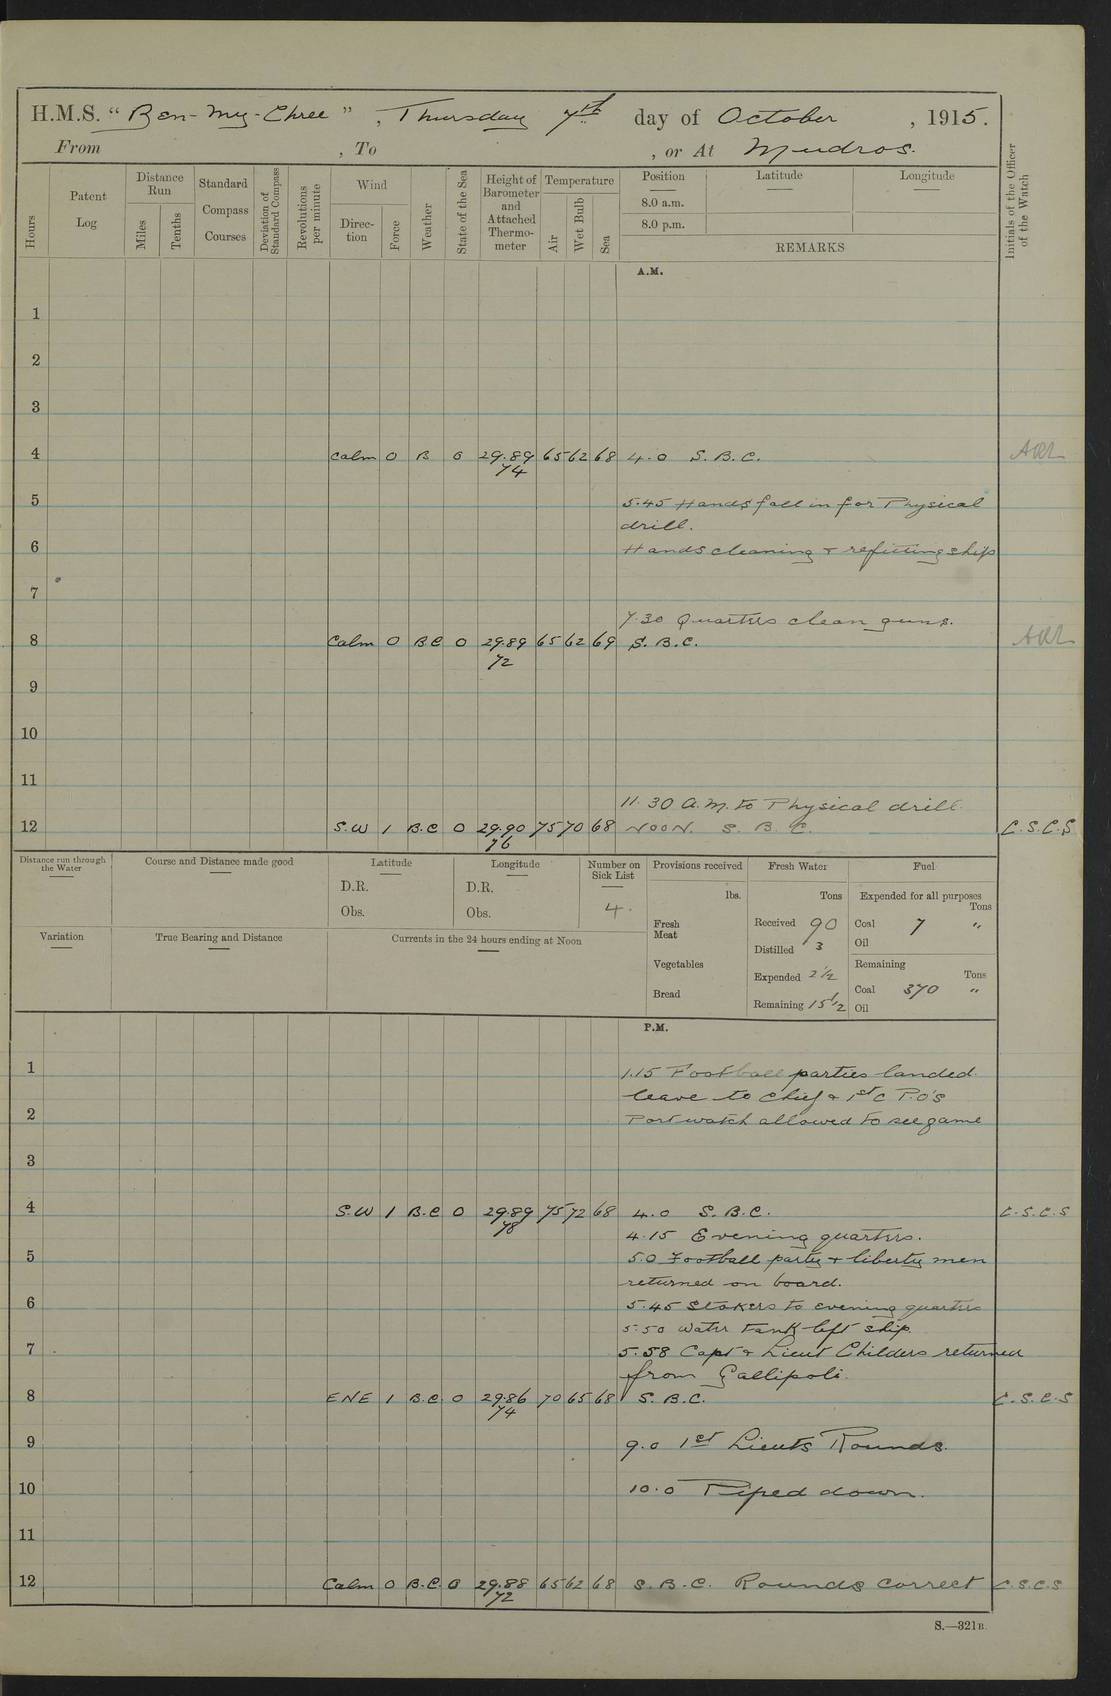 H.M.S. “ Ben-My-Chree ” , Thursday 7th day of October , 1915.
From , To , or At Mudros.
Hours
Patent Log
Distance Run
Miles
Tenths
Standard Compass Courses
Deviation of Standard Compass
Revolutions per minute
Wind
Direction
Force
Weather
State of the Sea
Height of Barometer and Attached Thermometer
Temperature
Air
Wet Bulb
Sea
Position
8.0 a.m.
8.0 p.m.
Latitude
Longitude
REMARKS
Initials of the Officer of the Watch
A.M.
1
2
3
4 Calm 0 B 0 29.89 65 62 68 4.0 S.B.C.
74
5 5.45 Hands fall in for Physical
drill.
6 Hands cleaning & refitting ship
7
7.30 Quarters clean guns.
8 Calm 0 BC 0 29.89 65 62 69 S.B.C.
72
9
10
11
11.30 A.M. to Physical drill.
12 S.W 1 B.C 0 29.90 75 70 68 NOON. S.B.C. C.S.C.S
76
Distance run through the Water
Course and Distance made good
Latitude
D.R.
Obs.
Longitude
D.R.
Obs.
Number on Sick List
4.
Provisions received
lbs.
Fresh Meat
Vegetables
Bread
Fresh Water
Tons
Received 90
Distilled 3
Expended 2½
Remaining 15½
Fuel
Expended for all purposes
Tons
Coal 7 "
Oil
Remaining
Tons
Coal 370 "
Oil
Variation
True Bearing and Distance
Currents in the 24 hours ending at Noon
P.M.
1 1.15 Football parties landed.
leave to Chief & 1st C P.O's
2 Port watch allowed to see game
3
4 S.W 1 B.C 0 29.89 75 72 68 4.0 S.B.C. C.S.C.S
78
4.15 Evening quarters.
5 5.0 Football party & liberty men
returned on board.
6 5.45 Stokers to evening quarters
5.50 Water tank left ship.
7 5.58 Capt & Lieut Childers returned
from Gallipoli.
8 ENE 1 B.C. 0 29.86 70 65 68 S.B.C. C.S.C.S
74
9 9.0 1st Lieuts Rounds.
10 10.0 Piped down.
11
12 Calm 0 B.C. 0 29.88 65 62 68 S.B.C. Rounds correct C.S.C.S
72
S.—321B.